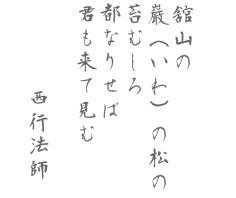 舘山の
巌（いわ）の松の
苔むしろ
都なりせば
君も来て見む
西行法師